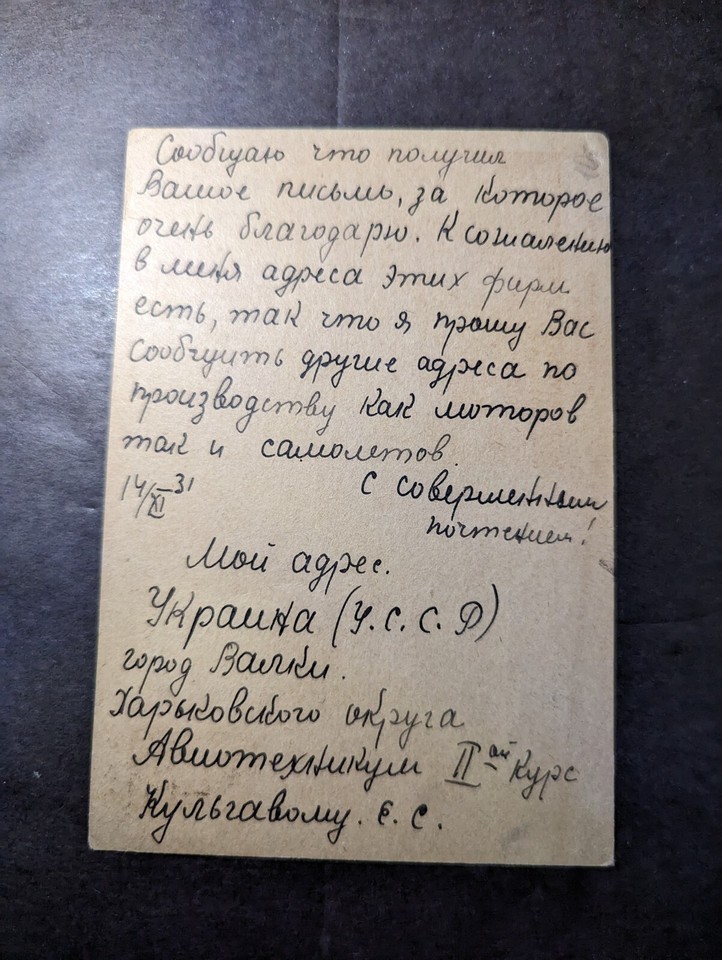 Сообщаю что получил
Вашое письмо, за которое
очень благодарю. К сожалению
в меня адреса этих фирм
есть, так что я прошу Вас
сообчуить другие адреса по
производству как моторов
так и самолетов.
14/XI-31 С совершенным
почтением!
Мой адрес.
Украина (У.С.С.Р)
город Валки.
Харьковского округа
Авиотехникум II ой Курс
Кульгавому. Є. С.